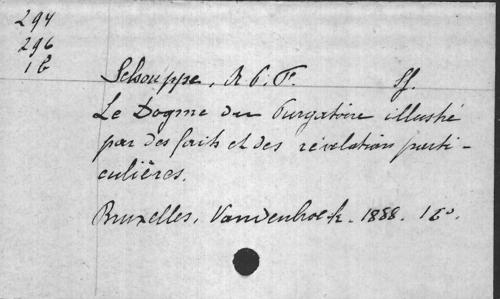 294
296
1 b
Schouppe, R. P. F. Sf.
Le Dogme du Purgatoire illustré
par des faits et des révélations parti-
culières.
Bruxelles, Vandenbroek. 1888. 16o.